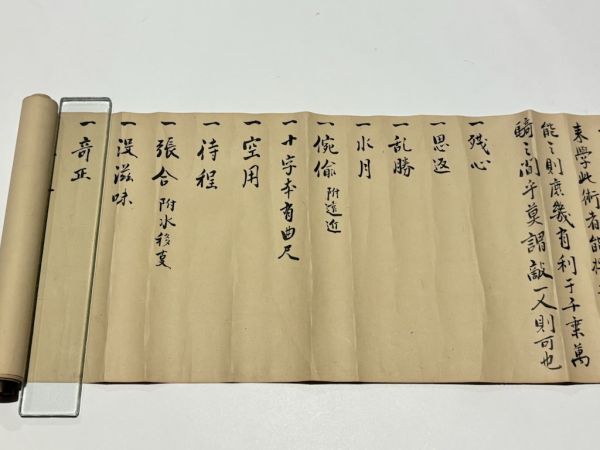 来学此術者能
能之則庶幾有利于千乗萬
騎之間乎莫謂敵一人則可也
一 残心
一 思返
一 乱勝
一 水月
一 俺偸 附遠近
一 十字本有曲尺
一 空用
一 待程
一 張合 附水移支
一 没滋味
一 奇正